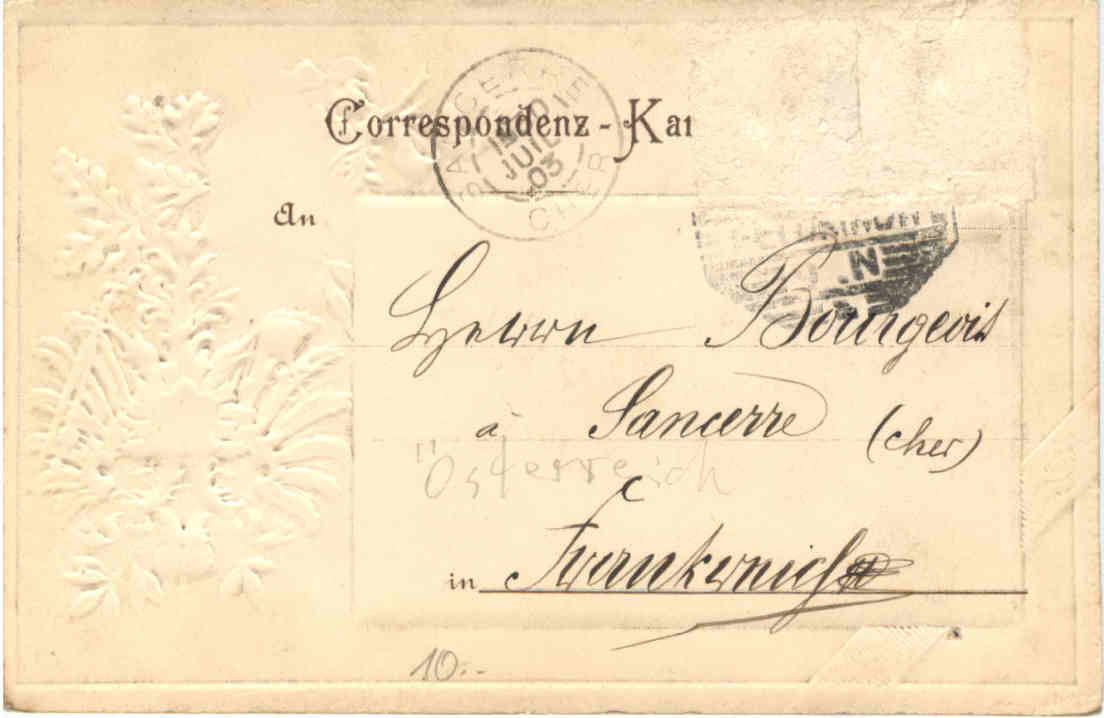 Correspondenz - Kar
SANCERRE
19
JUIL
03
CHER
An
N.
Herrn Bourgeois
à Sancerre (cher)
Österreich
in Frankreich
10.-